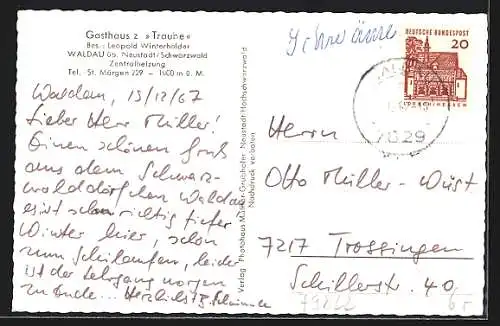 Gasthaus z. »Traube«
Bes.: Leopold Winterhalder
WALDAU üb. Neustadt/Schwarzwald
Zentralheizung
Tel. St. Märgen 229 — 1000 m ü. M.
Waldau, 13/12/67
Lieber Herr Müller!
Einen schönen Gruß
aus dem Schwarz-
walddörfchen Waldau
es ist schon richtig tiefer
Winter hier, schön
zum Schilaufen, leider
ist der Lehrgang morgen
zu Ende... Herzlichst
Verlag: Photohaus Müller-Grubhofer Neustadt-Hochschwarzwald
Nachdruck verboten
DEUTSCHE BUNDESPOST
20
7829
Herrn
Otto Müller-Wüst
7217 Trossingen
Schillerstr. 40